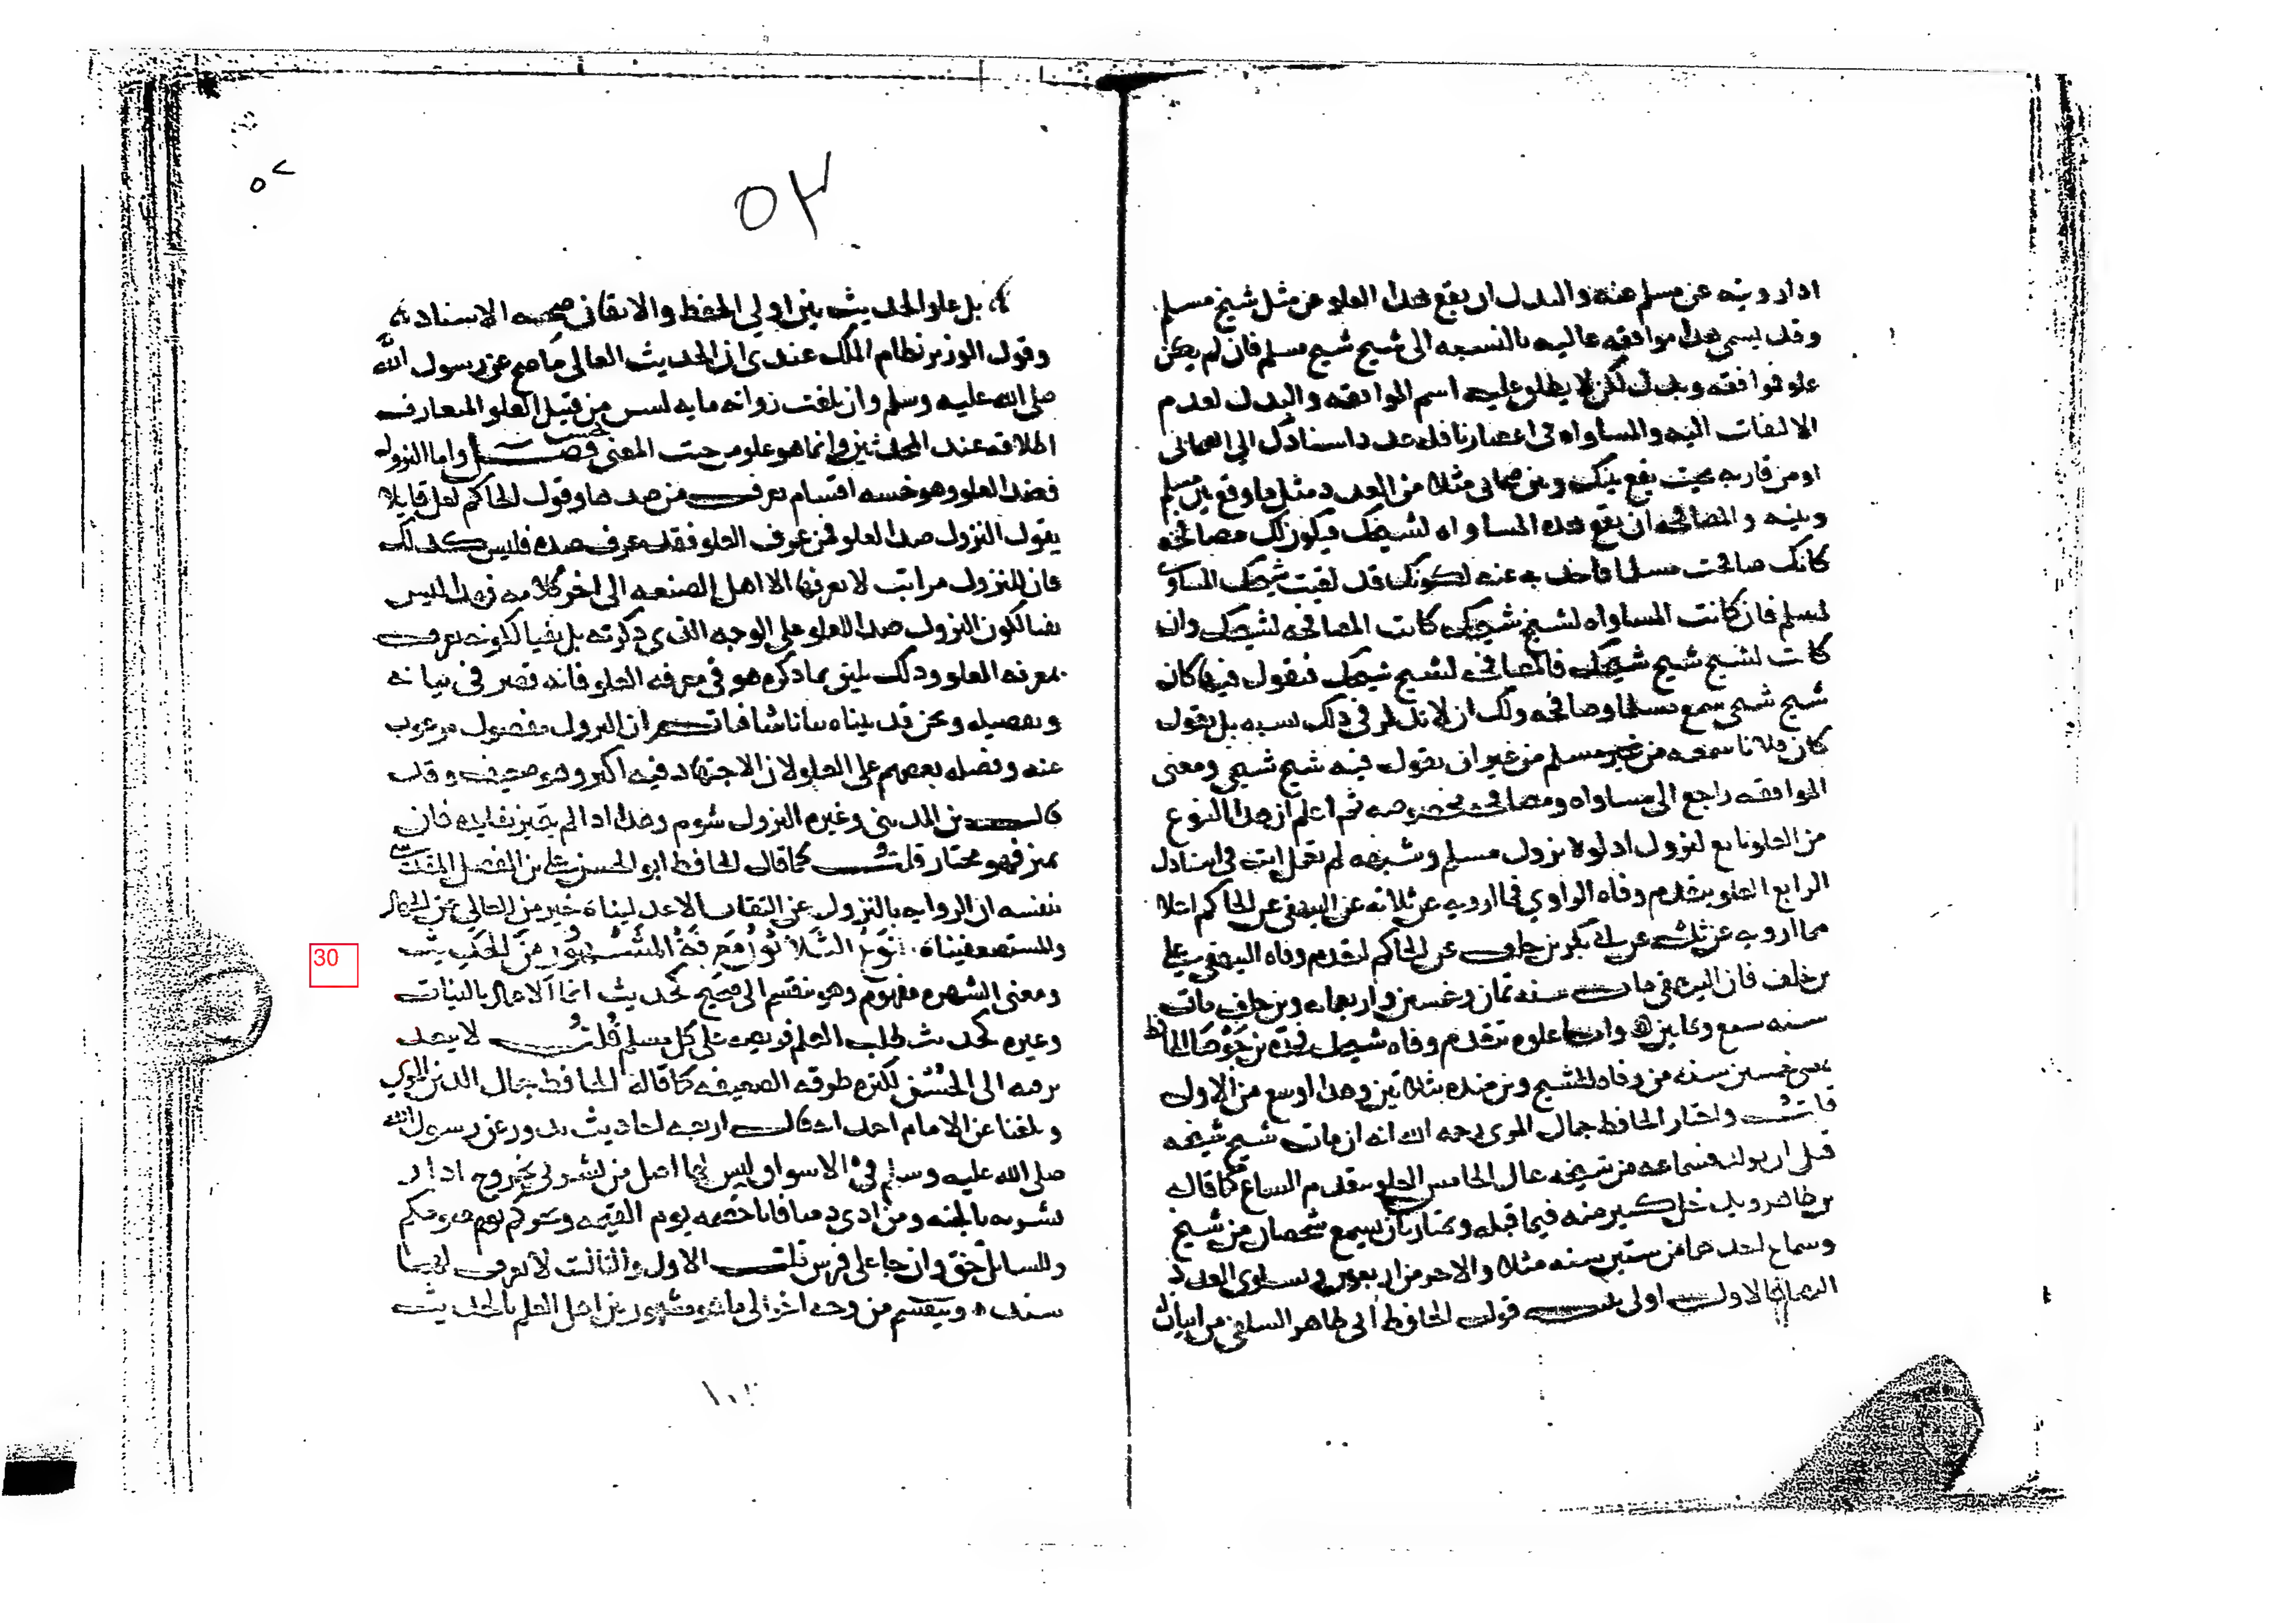 اذا رويته عن مسلم عنه والبدل ان يقع هذا العلو عن مثل شيخ مسلم
وقد يسمى هذا موافقه عاليه بالنسبه الى شيخ شيخ مسلم فان لم يكن
علو فوافقه وبدل لكن لا يطلق عليه اسم الموافقه والبدل لعدم
الالتفات اليه والمساواه فى اعصارنا قله عدد اسنادك الى الصحابى
او من قاربه بحيث يقع بينك وبين صحابى مثلا من العدد مثل ما وقع بين مسلم
وبينه والمصافحه ان يقع هذه المساواه لشيخك فيكون لك مصافحه
كانك صافحت مسلما فاخذت به عنه لكونك قد لقيت شيخك المساوى
لمسلم فان كانت المساواه لشيخ شيخك كانت المصافحه لشيخك وان
كانت لشيخ شيخ شيخك فالمصافحه لشيخ شيخك فتقول فيها كان
شيخ شيخى سمع مسلما وصافحه ولك ان لا تذكر فى ذلك نسبه بل تقول
كان فلانا سمعه من مسلم من غير ان تقول فيه شيخ شيخى ومعنى
الموافقه راجع الى مساواه ومصافحه مخصوصه ثم اعلم ان هذا النوع
من العلو تابع لنزول اذ لولا نزول مسلم وشبهه لم تعل انت فى اسنادك
الرابع العلو بتقدم وفاه الراوي فما ارويه عن ثلاثه عن البيهقى عن الحاكم اعلا
مما ارويه عن ثلثه عن ابى بكر بن خلف عن الحاكم لتقدم وفاه البيهقى على
بن خلف فان البيهقى مات سنه ثمان وخمسين واربعمايه وبن خلف مات
سنه سبع وثمانين واما علوه بتقدم وفاه شيخك فحده بن جوصا الحافظ
بمضى خمسين سنه من وفاه الشيخ وبن منده بثلاثين وهذا اوسع من الاول
قلت واختار الحافظ جمال المزى رحمه الله انه ان مات شيخ شيخه
قبل ان يولد فسماعه من شيخه عال الخامس العلو بتقدم السماع كما قاله
بن طاهر ويدخل كثير منه فيما قبله ويمتاز بان يسمع شخصان من شيخ
وسماع احدهما من ستين سنه مثلا والاخر من اربعين وتساوى العدد
اليهما فالاول اولى قلت قول الحافظ ابى طاهر السلفى من ابيات
بل علو الحديث بين اولي الحفظ والاتقان صحه الاسناد
وقول الوزير نظام الملك عندى ان الحديث العالى ما صح عن رسول الله
صلى الله عليه وسلم وان بلغت رواته مايه ليس من قبيل العلو المتعارف
اطلاقه عند المحدثين وانما هو علو من حيث المعنى فحسب فصل واما النزول
فضد العلو وهو خمسه اقسام تعرف من ضدها وقول الحاكم لعل قايلا
يقول النزول ضد العلو فمن عرف العلو فقد عرف ضده فليس كذلك
فان للنزول مراتب لا يعرفها الا اهل الصنعه الى اخر كلامه فهذا ليس
نفيا لكون النزول ضدا للعلو على الوجه الذى ذكرته بل نفيا لكونه يعرف
بمعرفه العلو وذلك يليق بما ذكره هو فى معرفه العلو فانه قصر فى بيانه
وتفصيله ونحن قد بيناه بيانا شافيا ثم ان النزول مفضول مرغوب
عنه وفضله بعضهم على العلو لان الاجتهاد فيه اكبر وهو ضعيف وقد
قال بن المدينى وغيره النزول شوم وهذا اذا لم يتميز بفايده فان
تميز فهو مختار قلت كما قال الحافظ ابو الحسن على بن المفضل المقدسى
لنفسه ان الروايه بالنزول عن الثقات الاعدلينا خير من العالى عن الجهال
والمستضعفينا نوع الثلاثون معرفة المشهور من الحديث
ومعنى الشهره مفهوم وهو منقسم الى صحيح كحديث انما الاعمال بالنيات
وغيره كحديث طلب العلم فريضه على كل مسلم قلت لا يبعد
ترقيه الى الحسن لكثره طرقه الضعيفه كما قاله الحافظ جمال الدين المزى
وبلغنا عن الامام احمد انه قال اربعه احاديث تدور عن رسول الله
صلى الله عليه وسلم فى الاسواق ليس لها اصل من بشرنى بخروج اذار
بشرته بالجنه ومن اذى ذميا فانا خصمه يوم القيمه ونحركم يوم صومكم
وللسائل حق وان جا على فرس قلت الاول والثالث لا يعرف لهما
سند وينقسم من وجه اخر الى ما هو مشهور بين اهل العلم بالحديث
30